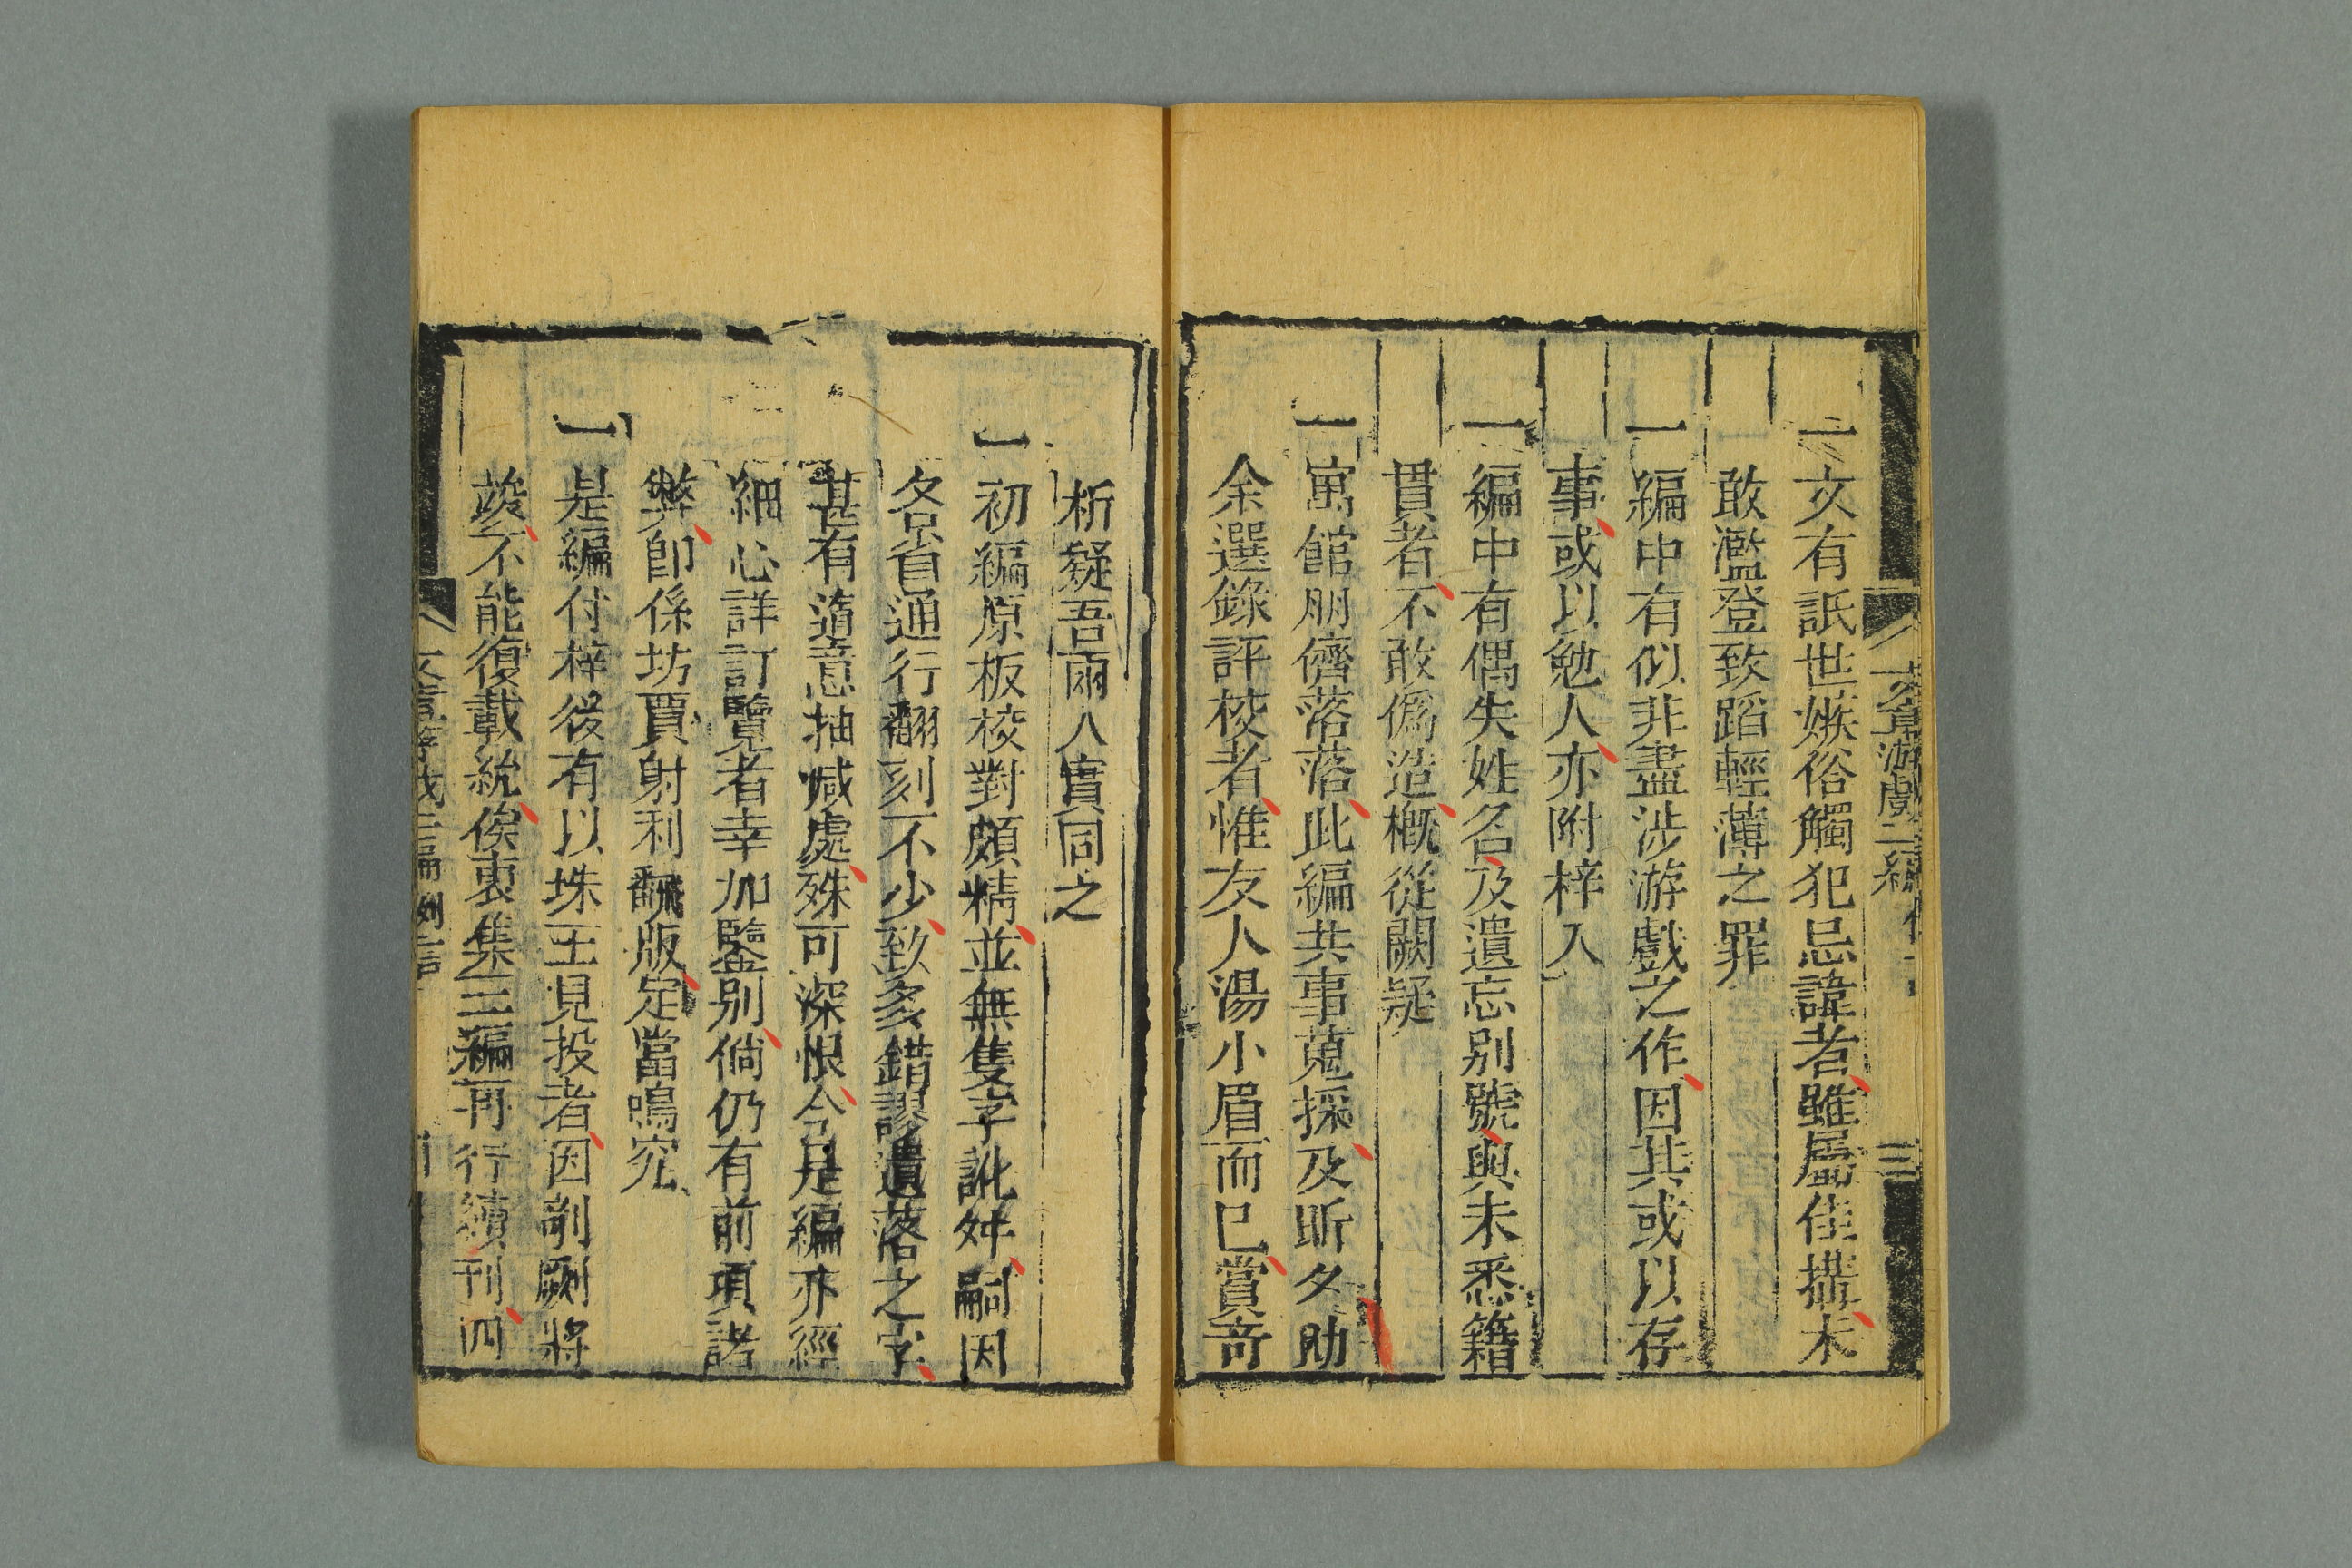 一文有詆世嫉俗觸犯忌諱者雖屬佳搆未
敢濫登致蹈輕薄之罪
一編中有似非盡涉游戲之作因其或以存
事或以勉人亦附梓入
一編中有偶失姓名及遺忘別號與未悉籍
貫者不敢僞造概從闕疑
一寓館朋儕落落此編共事蒐採及昕夕助
余選錄評校者惟友人湯小眉而已賞奇
析疑吾兩人實同之
一初編原板校對頗精並無隻字訛舛嗣因
各省通行翻刻不少致多錯謬遺落之字
甚有隨意抽減處殊可深恨今是編亦經
細心詳訂覽者幸加鑒別倘仍有前項諸
弊卽係坊賈射利翻版定當鳴究
一是編付梓後有以珠玉見投者因剞劂將
竣不能復載統俟裒集三編再行續刊四
文章游戲二編
三
文章游戲二編 例言